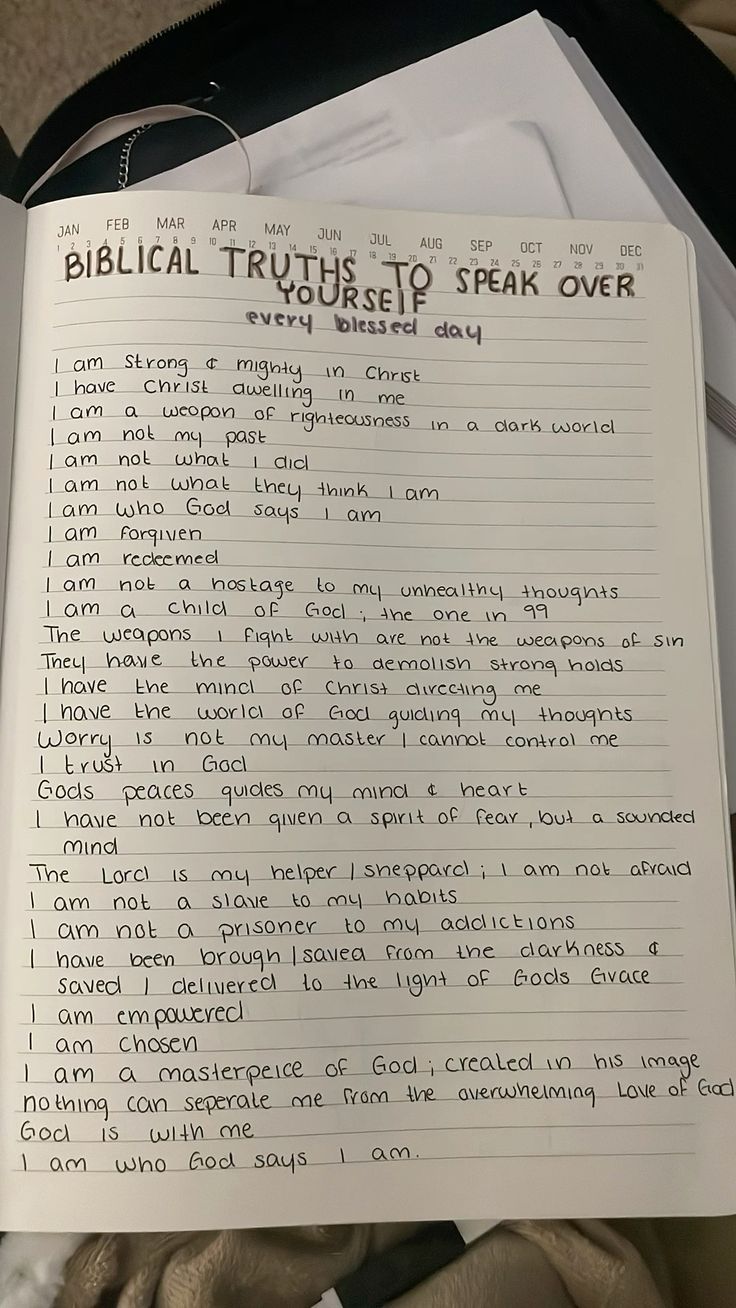 JAN FEB MAR APR MAY JUN JUL AUG SEP OCT NOV DEC
1 2 3 4 5 6 7 8 9 10 11 12 13 14 15 16 17 18 19 20 21 22 23 24 25 26 27 28 29 30 31
BIBLICAL TRUTHS TO SPEAK OVER
YOURSELF
every blessed day
I am strong & mighty in Christ
I have Christ dwelling in me
I am a weopon of righteousness in a dark world
I am not my past
I am not what I did
I am not what they think I am
I am who God says I am
I am forgiven
I am redeemed
I am not a hostage to my unhealthy thoughts
I am a child of God ; the one in 99
The weapons I fight with are not the weapons of sin
They have the power to demolish strong holds
I have the mind of Christ directing me
I have the world of God guiding my thoughts
Worry is not my master / cannot control me
I trust in God
Gods peaces guides my mind & heart
I have not been given a spirit of fear, but a sounded
mind
The Lord is my helper / sheppard ; I am not afraid
I am not a slave to my habits
I am not a prisoner to my addictions
I have been brough / saved from the darkness &
saved / delivered to the light of Gods Grace
I am empowered
I am chosen
I am a masterpeice of God ; created in his image
nothing can seperate me from the overwhelming Love of God
God is with me
I am who God says I am.